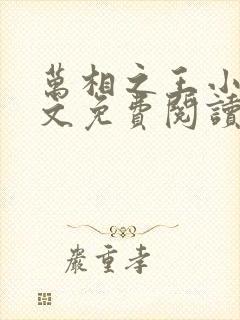 萬相之王小
文免費閱讀
嚴重孝